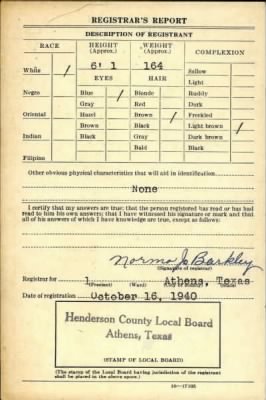 REGISTRAR'S REPORT
DESCRIPTION OF REGISTRANT
RACE HEIGHT (Approx.) WEIGHT (Approx.) COMPLEXION
6' 1 164 Sallow
White / EYES HAIR Light
Negro Blue / Blonde Ruddy
Gray Red Dark
Oriental Hazel Brown / Freckled
Brown Black Light brown /
Indian Black Gray Dark brown
Bald Black
Filipino
Other obvious physical characteristics that will aid in identification
None
I certify that my answers are true; that the person registered has read or has had
read to him his own answers; that I have witnessed his signature or mark and that
all of his answers of which I have knowledge are true, except as follows:
Norma Jo Barkley
(Signature of registrar)
Registrar for 1 Athens, Texas
(Precinct) (Ward) (City or County) (State)
Date of registration October 16, 1940
Henderson County Local Board
Athens, Texas
(STAMP OF LOCAL BOARD)
(The stamp of the Local Board having jurisdiction of the registrant
shall be placed in the above space.)